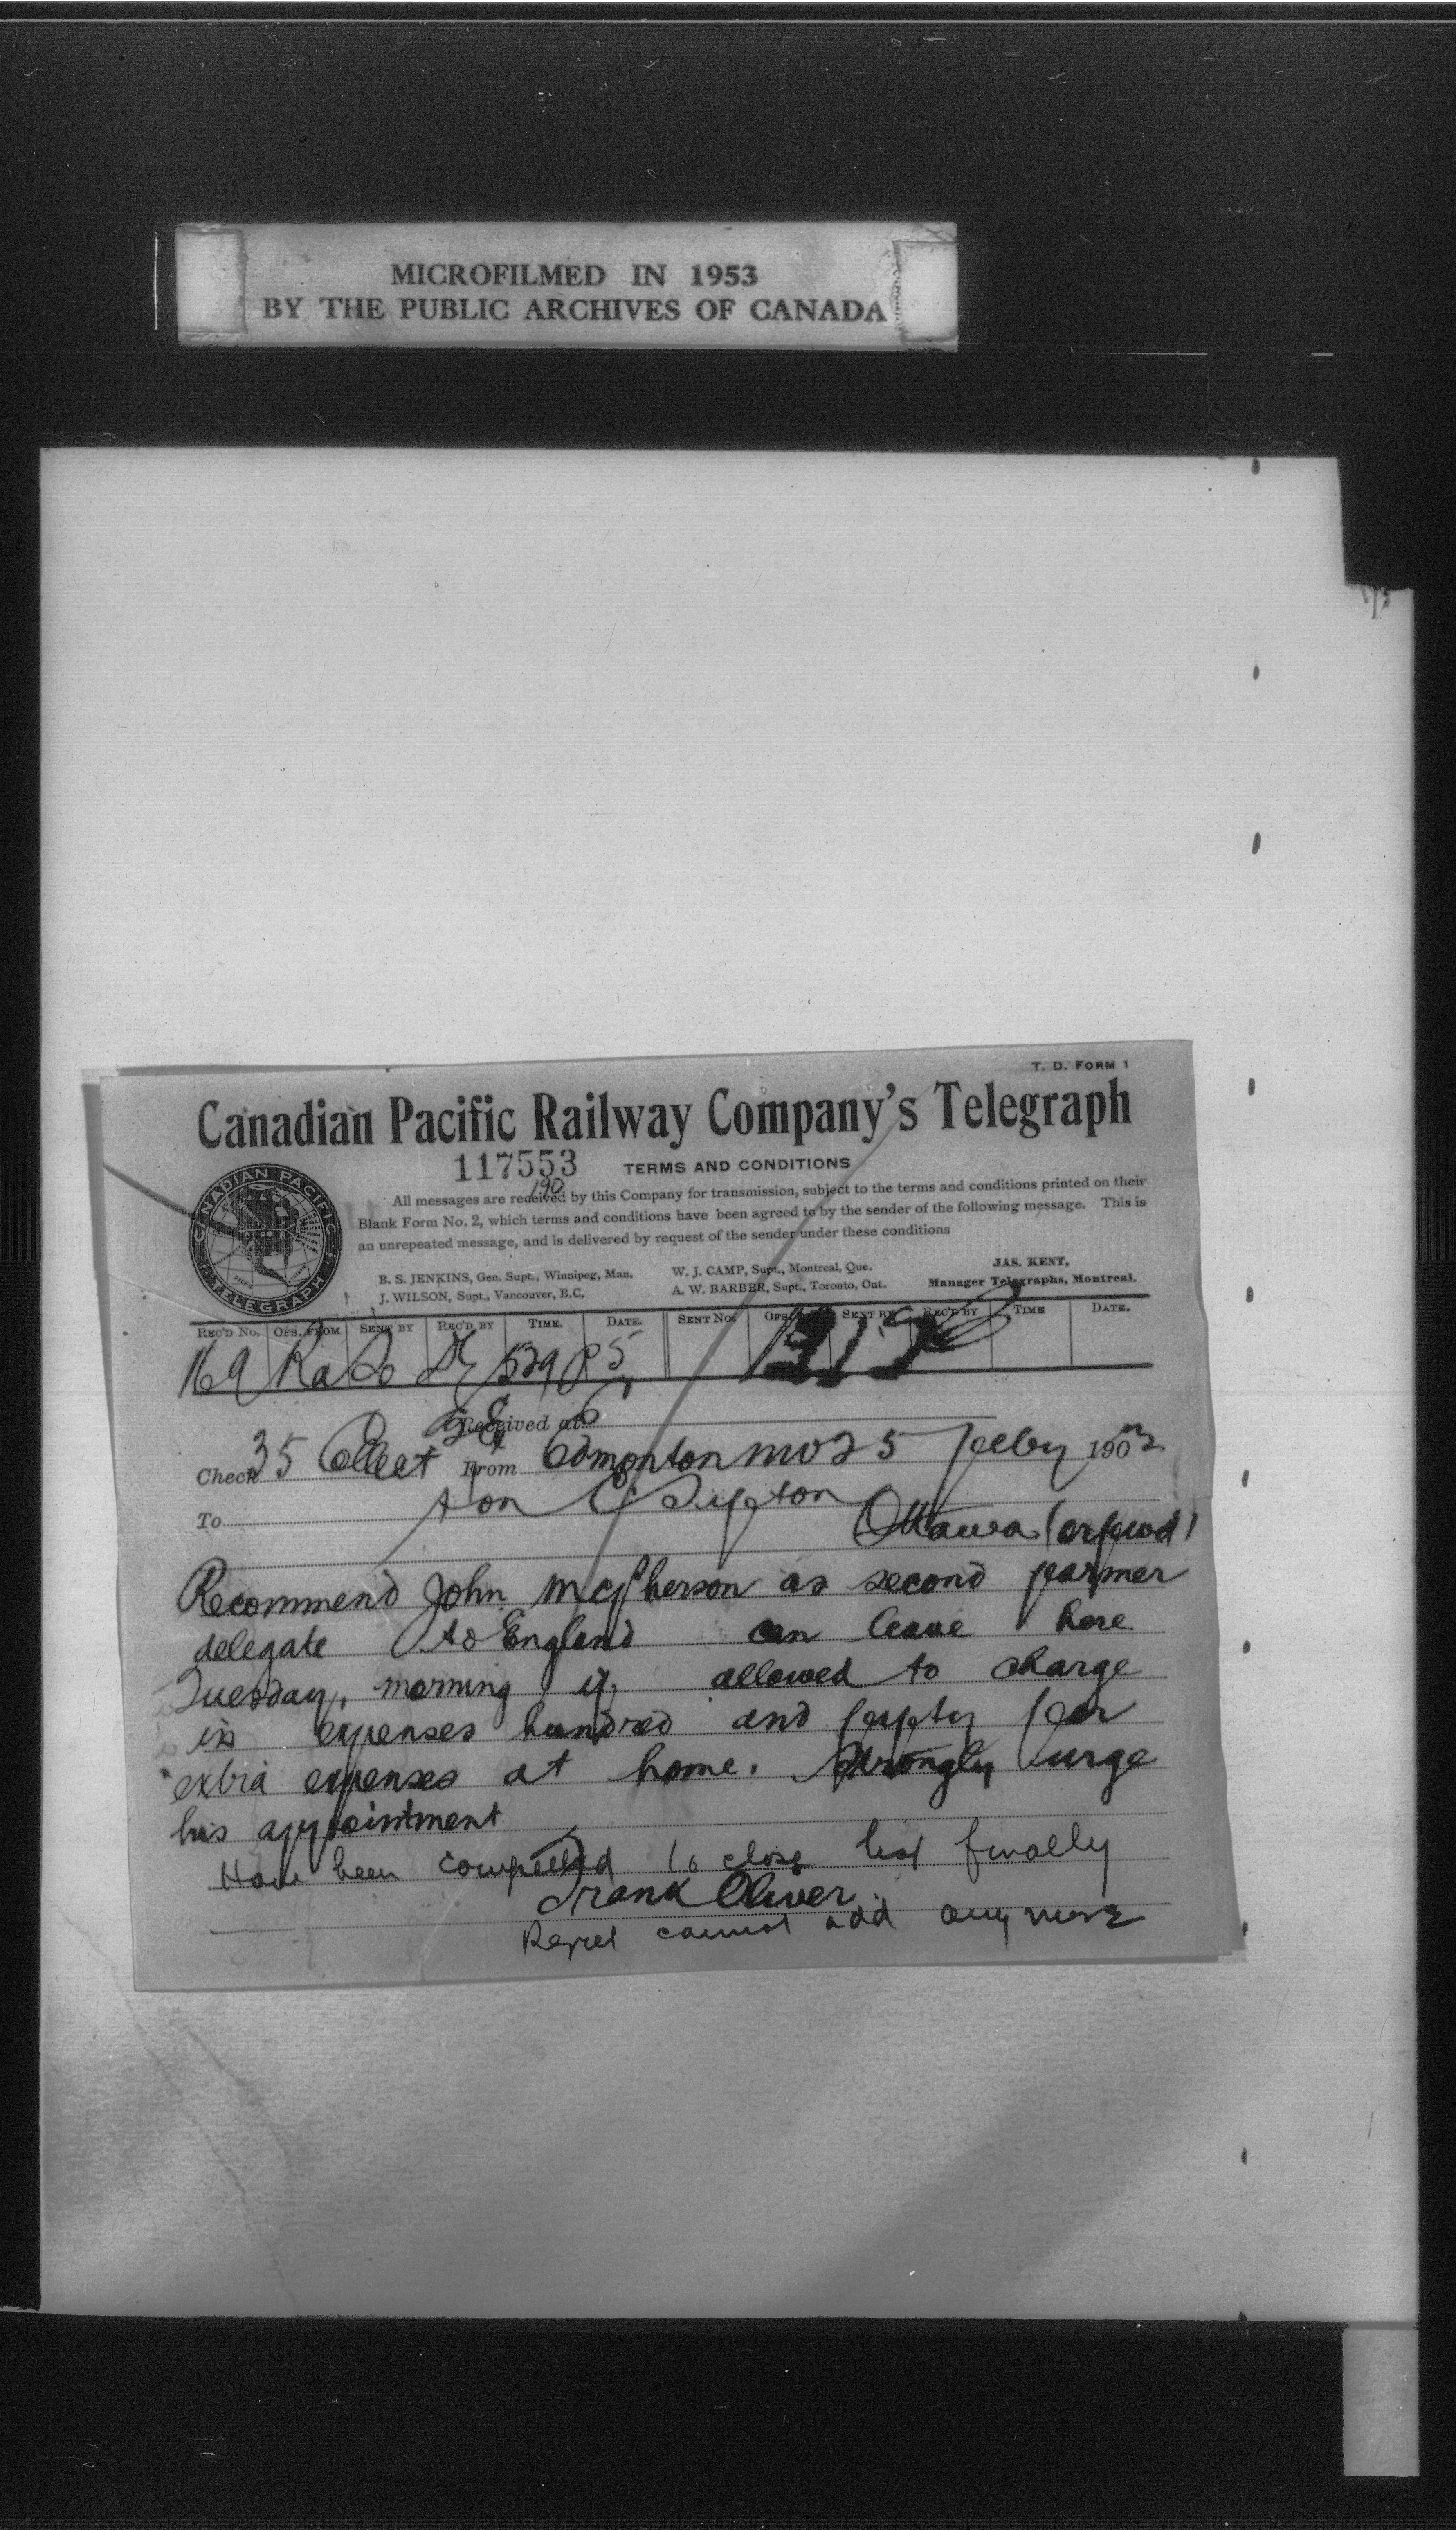 MICROFILMED IN 1953
BY THE PUBLIC ARCHIVES OF CANADA
T. D. FORM 1
Canadian Pacific Railway Company's Telegraph
117553
190
TERMS AND CONDITIONS
All messages are received by this Company for transmission, subject to the terms and conditions printed on their
Blank Form No. 2, which terms and conditions have been agreed to by the sender of the following message. This is
an unrepeated message, and is delivered by request of the sender under these conditions
CANADIAN PACIFIC
TELEGRAPH
B. S. JENKINS, Gen. Supt., Winnipeg, Man.
J. WILSON, Supt., Vancouver, B.C.
W. J. CAMP, Supt., Montreal, Que.
A. W. BARBER, Supt., Toronto, Ont.
JAS. KENT,
Manager Telegraphs, Montreal.
REC'D NO. OFS. FROM SENT BY REC'D BY TIME. DATE. SENT NO. OFS. SENT BY REC'D BY TIME DATE.
169 Ra Do 529 P 5
Received at
Check 35 Collect From Edmonton 25 Feby 190
To Hon C Sifton
Ottawa
Recommend John McPherson as second farmer
delegate to England can leave here
Tuesday morning if allowed to charge
in expenses hundred and fifty for
extra expenses at home. Strongly urge
his appointment
Have been compelled to close list finally
Frank Oliver
Regret cannot add any more